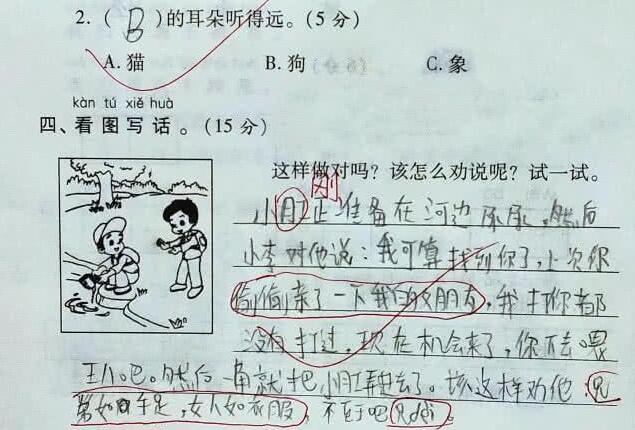 2.（ B ）的耳朵听得远。（5 分）
A. 猫 B. 狗 C. 象
kàn tú xiě huà
四、看图写话。（15 分）
这样做对吗？该怎么劝说呢？试一试。
刚
小月正准备在河边尿尿，然后
小李对他说：我可算找到你了，上次你
偷偷亲了一下我的女朋友，我打你都
没有打过，现在机会来了，你去喂
王八吧。然后一角就把小弄去了。该这样劝他，兄
弟如手足，女人如衣服，不至于吧